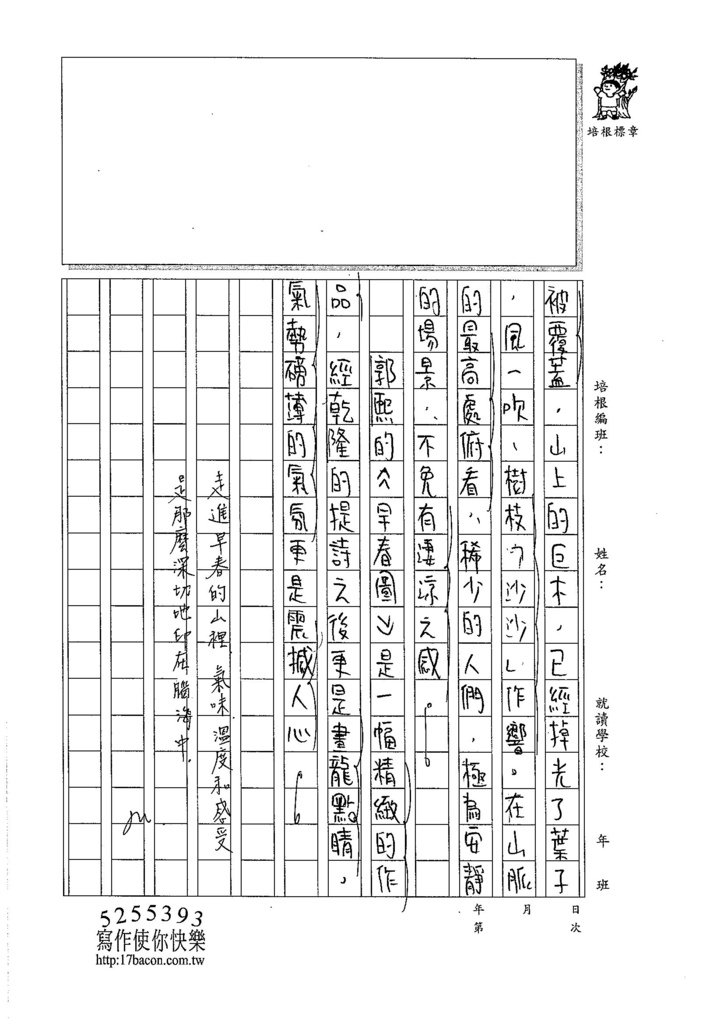 培根標章
培根編班：
姓名：
就讀學校：
年
班
被覆蓋，山上的巨木，已經掉光了葉子
，風一吹、樹枝「沙沙」作響。在山脈
的最高處俯看，稀少的人們，極為安靜
的場景，不免有淒涼之感。
郭熙的《早春圖》是一幅精緻的作
品，經乾隆的提詩之後更是畫龍點睛，
氣勢磅薄的氣氛更是震撼人心。
走進早春的山裡、氣味溫度和感受
是那麼深切地印在腦海中.
年 月 日
第 次
5255393
寫作使你快樂
http:17bacon.com.tw